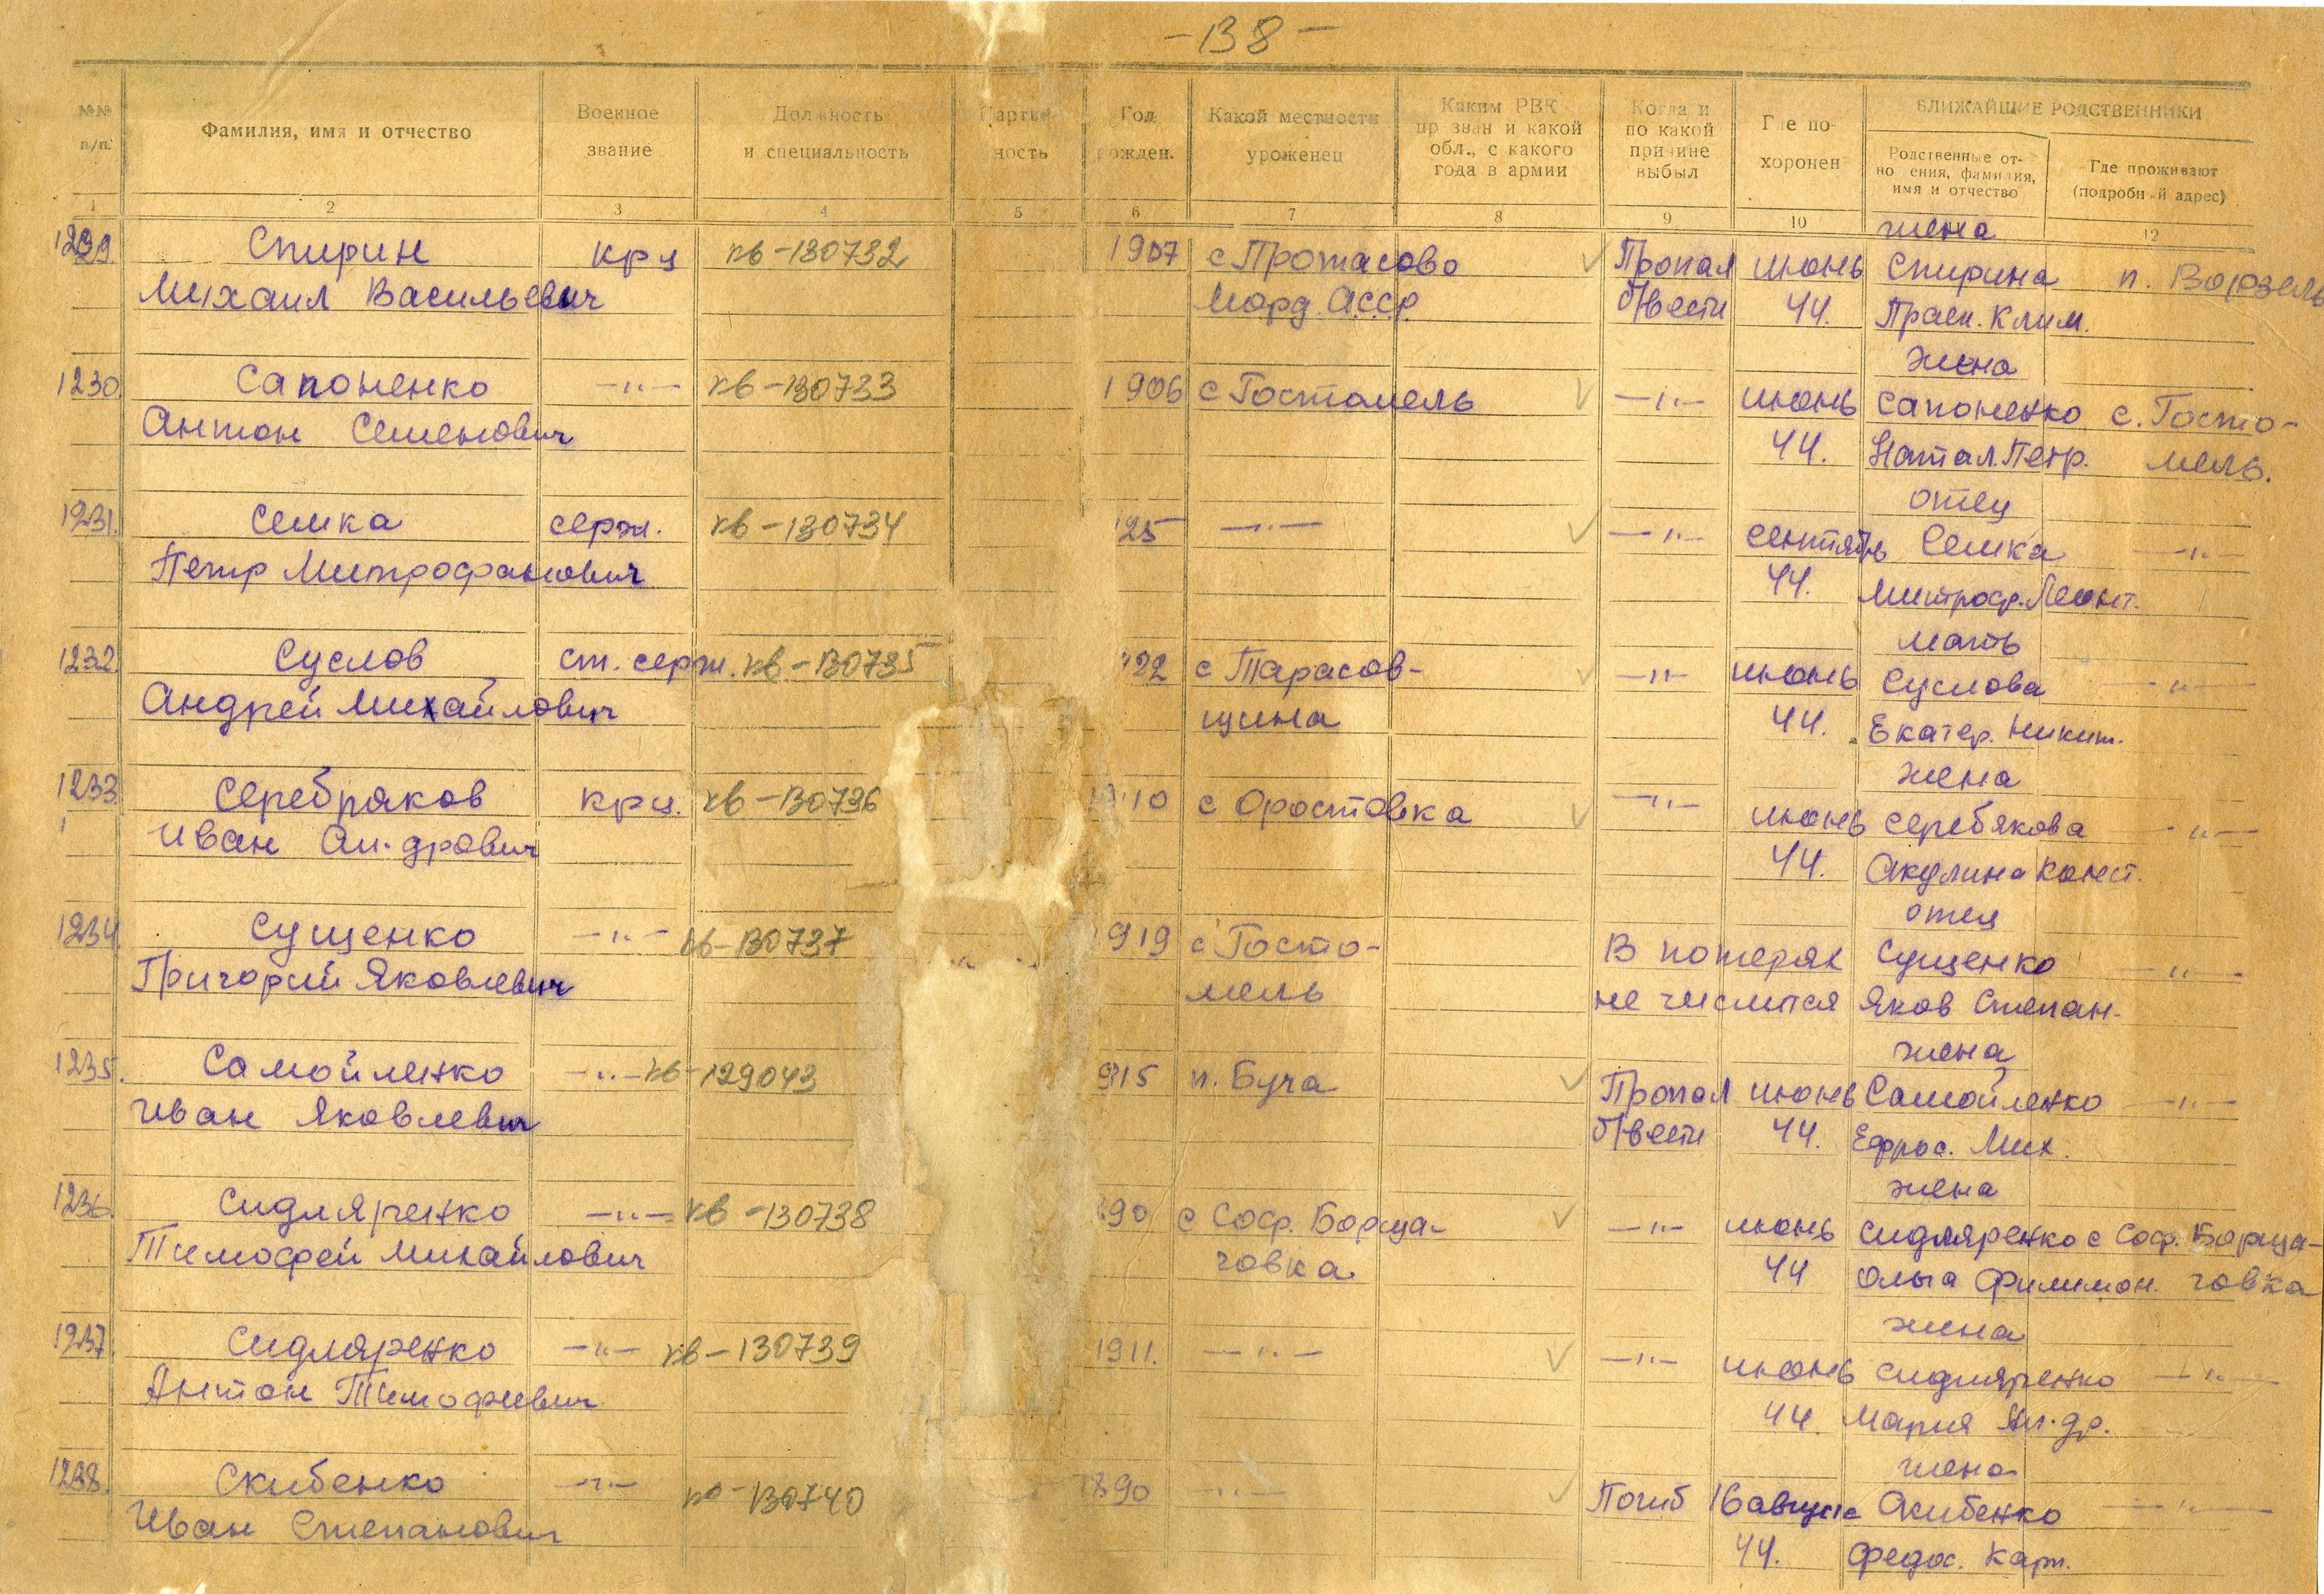 -138-
№№ п/п.
Фамилия, имя и отчество
Военное звание
Должность и специальность
Партийность
Год рожден.
Какой местности уроженец
Каким РВК призван и какой обл., с какого года в армии
Когда и по какой причине выбыл
Где похоронен
БЛИЖАЙШИЕ РОДСТВЕННИКИ
Родственные отношения, фамилия, имя и отчество
Где проживают (подробный адрес)
1 2 3 4 5 6 7 8 9 10 12
жена
1229. Спирин кр-ц кв-130732 1907 с Протасово Пропал июнь Спирина п. Ворзель
Михаил Васильевич Морд. АССР. б/вести 44. Праск. Клим.
жена
1230 Сапоненко -"- кв-130733 1906 с Гостомель -"- июнь Сапоненко с. Госто-
Антон Семенович 44. Натал. Петр. мель.
отец
1231. Семка серж. кв-130734 25 -"- -"- сентябрь Семка -"-
Петр Митрофанович 44. Митроф. Леонт.
мать
1232 Суслов ст. серж. кв-130735 922 с Тарасов- -"- июнь Суслова -"-
Андрей Михайлович щина 44. Екатер. Никит.
жена
1233. Серебряков крц. кв-130736 1910 с Оростовка -"- июнь Серебякова -"-
Иван Ал-дрович 44. Акулина Конст.
отец
1234. Сущенко -"- кв-130737 919 с Госто- В потерях Сущенко -"-
Григорий Яковлевич мель не числится Яков Степан.
жена
1235. Самойленко -"- кв-129043 915 п. Буча Пропал июнь Самойленко -"-
Иван Яковлевич б/вести 44. Ефрос. Мих.
жена
1236. Сидляренко -"- кв-130738 890 с Соф. Борща- -"- июнь Сидляренко с Соф. Борща-
Тимофей Михайлович говка 44 Ольга Филимон. говка
жена
1237. Сидляренко -"- кв-130739 1911. -"- -"- июнь Сидляренко -"-
Антон Тимофеевич 44. Мария Ал-др.
жена
1238. Скибенко -"- кв-130740 1890 -"- Погиб 16 августа Скибенко -"-
Иван Степанович 44. Федос. Карп.